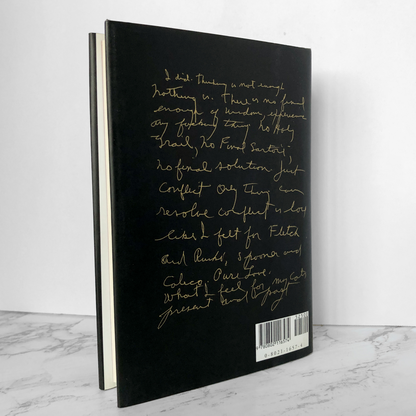 I did. Thinking is not enough
Nothing is. There is no final
enough of wisdom, experience
any fucking thing. No Holy
Grail, No Final Satori,
no final solution. Just
conflict Only thing can
resolve conflict is love
like I felt for Fletch
and Ruski, Spooner and
Calico. Pure Love.
What I feel for my cats
present and past
0-8021-1657-4